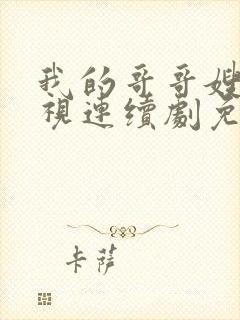 我的哥哥嫂
視連續劇免
卡薩